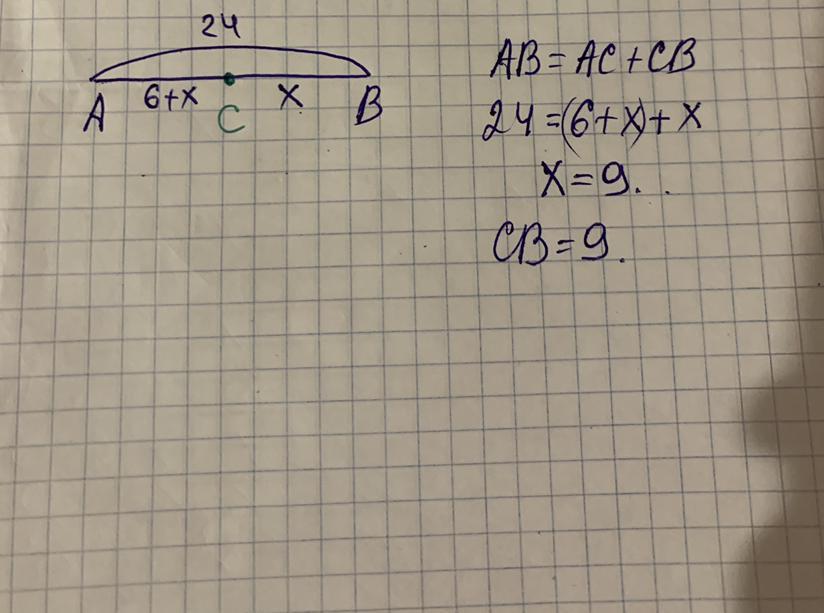 24
A 6+x C x B
AB = AC + CB
24 = (6+x) + x
x = 9.
CB = 9.